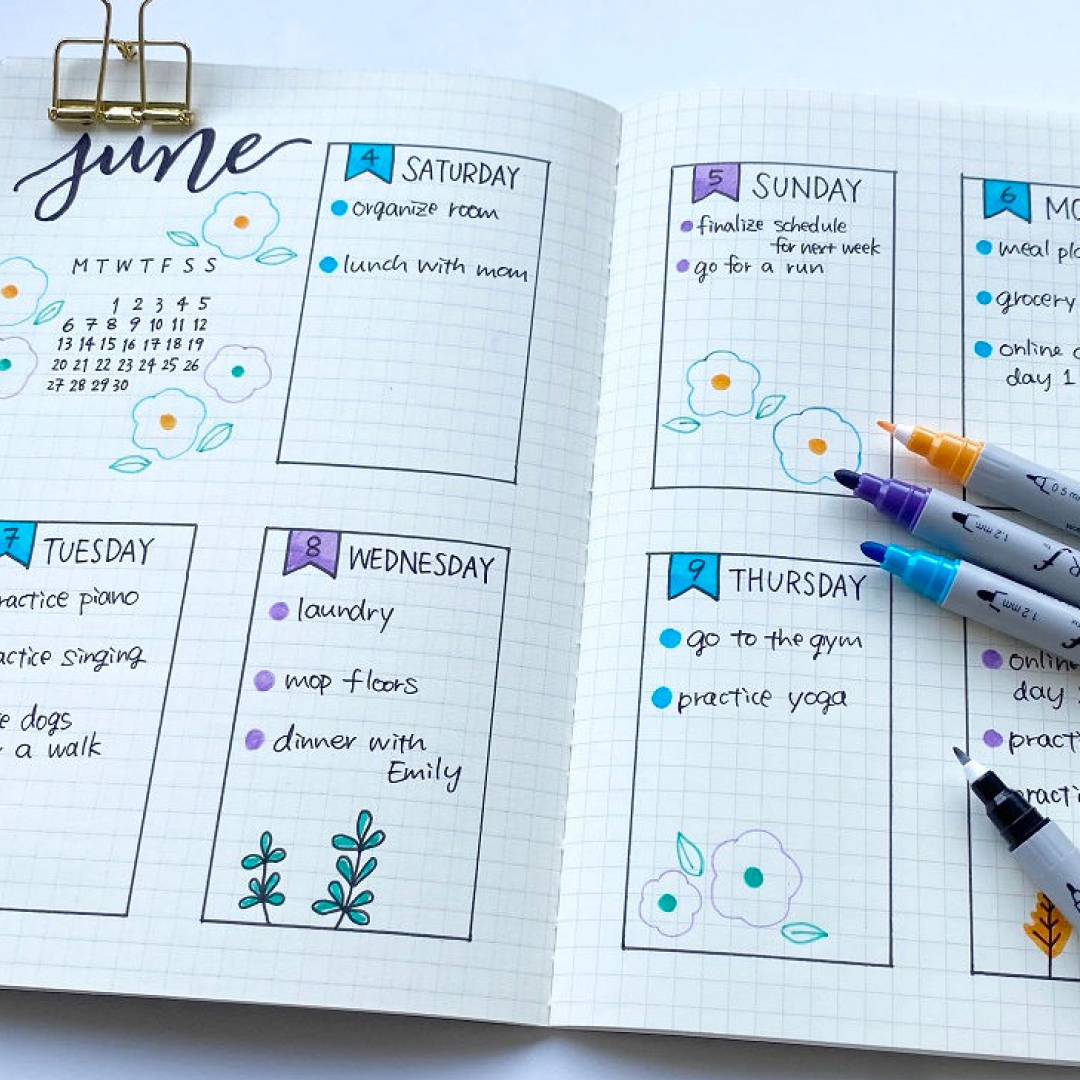 june
M T W T F S S
1 2 3 4 5
6 7 8 9 10 11 12
13 14 15 16 17 18 19
20 21 22 23 24 25 26
27 28 29 30
4 SATURDAY
organize room
lunch with mom
7 TUESDAY
piano
singing
dogs
a walk
8 WEDNESDAY
laundry
mop floors
dinner with
Emily
5 SUNDAY
finalize schedule
for next week
go for a run
6
meal
grocery
online
day 1
9 THURSDAY
go to the gym
practice yoga
day
0.5 mm
1.2 mm
1.2 mm